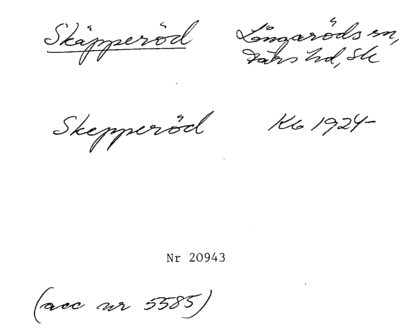 Skäpperöd Långaröds sn,
Färs hd, Sk
Skepperöd Kb 1924-
Nr 20943
(acc nr 5585)